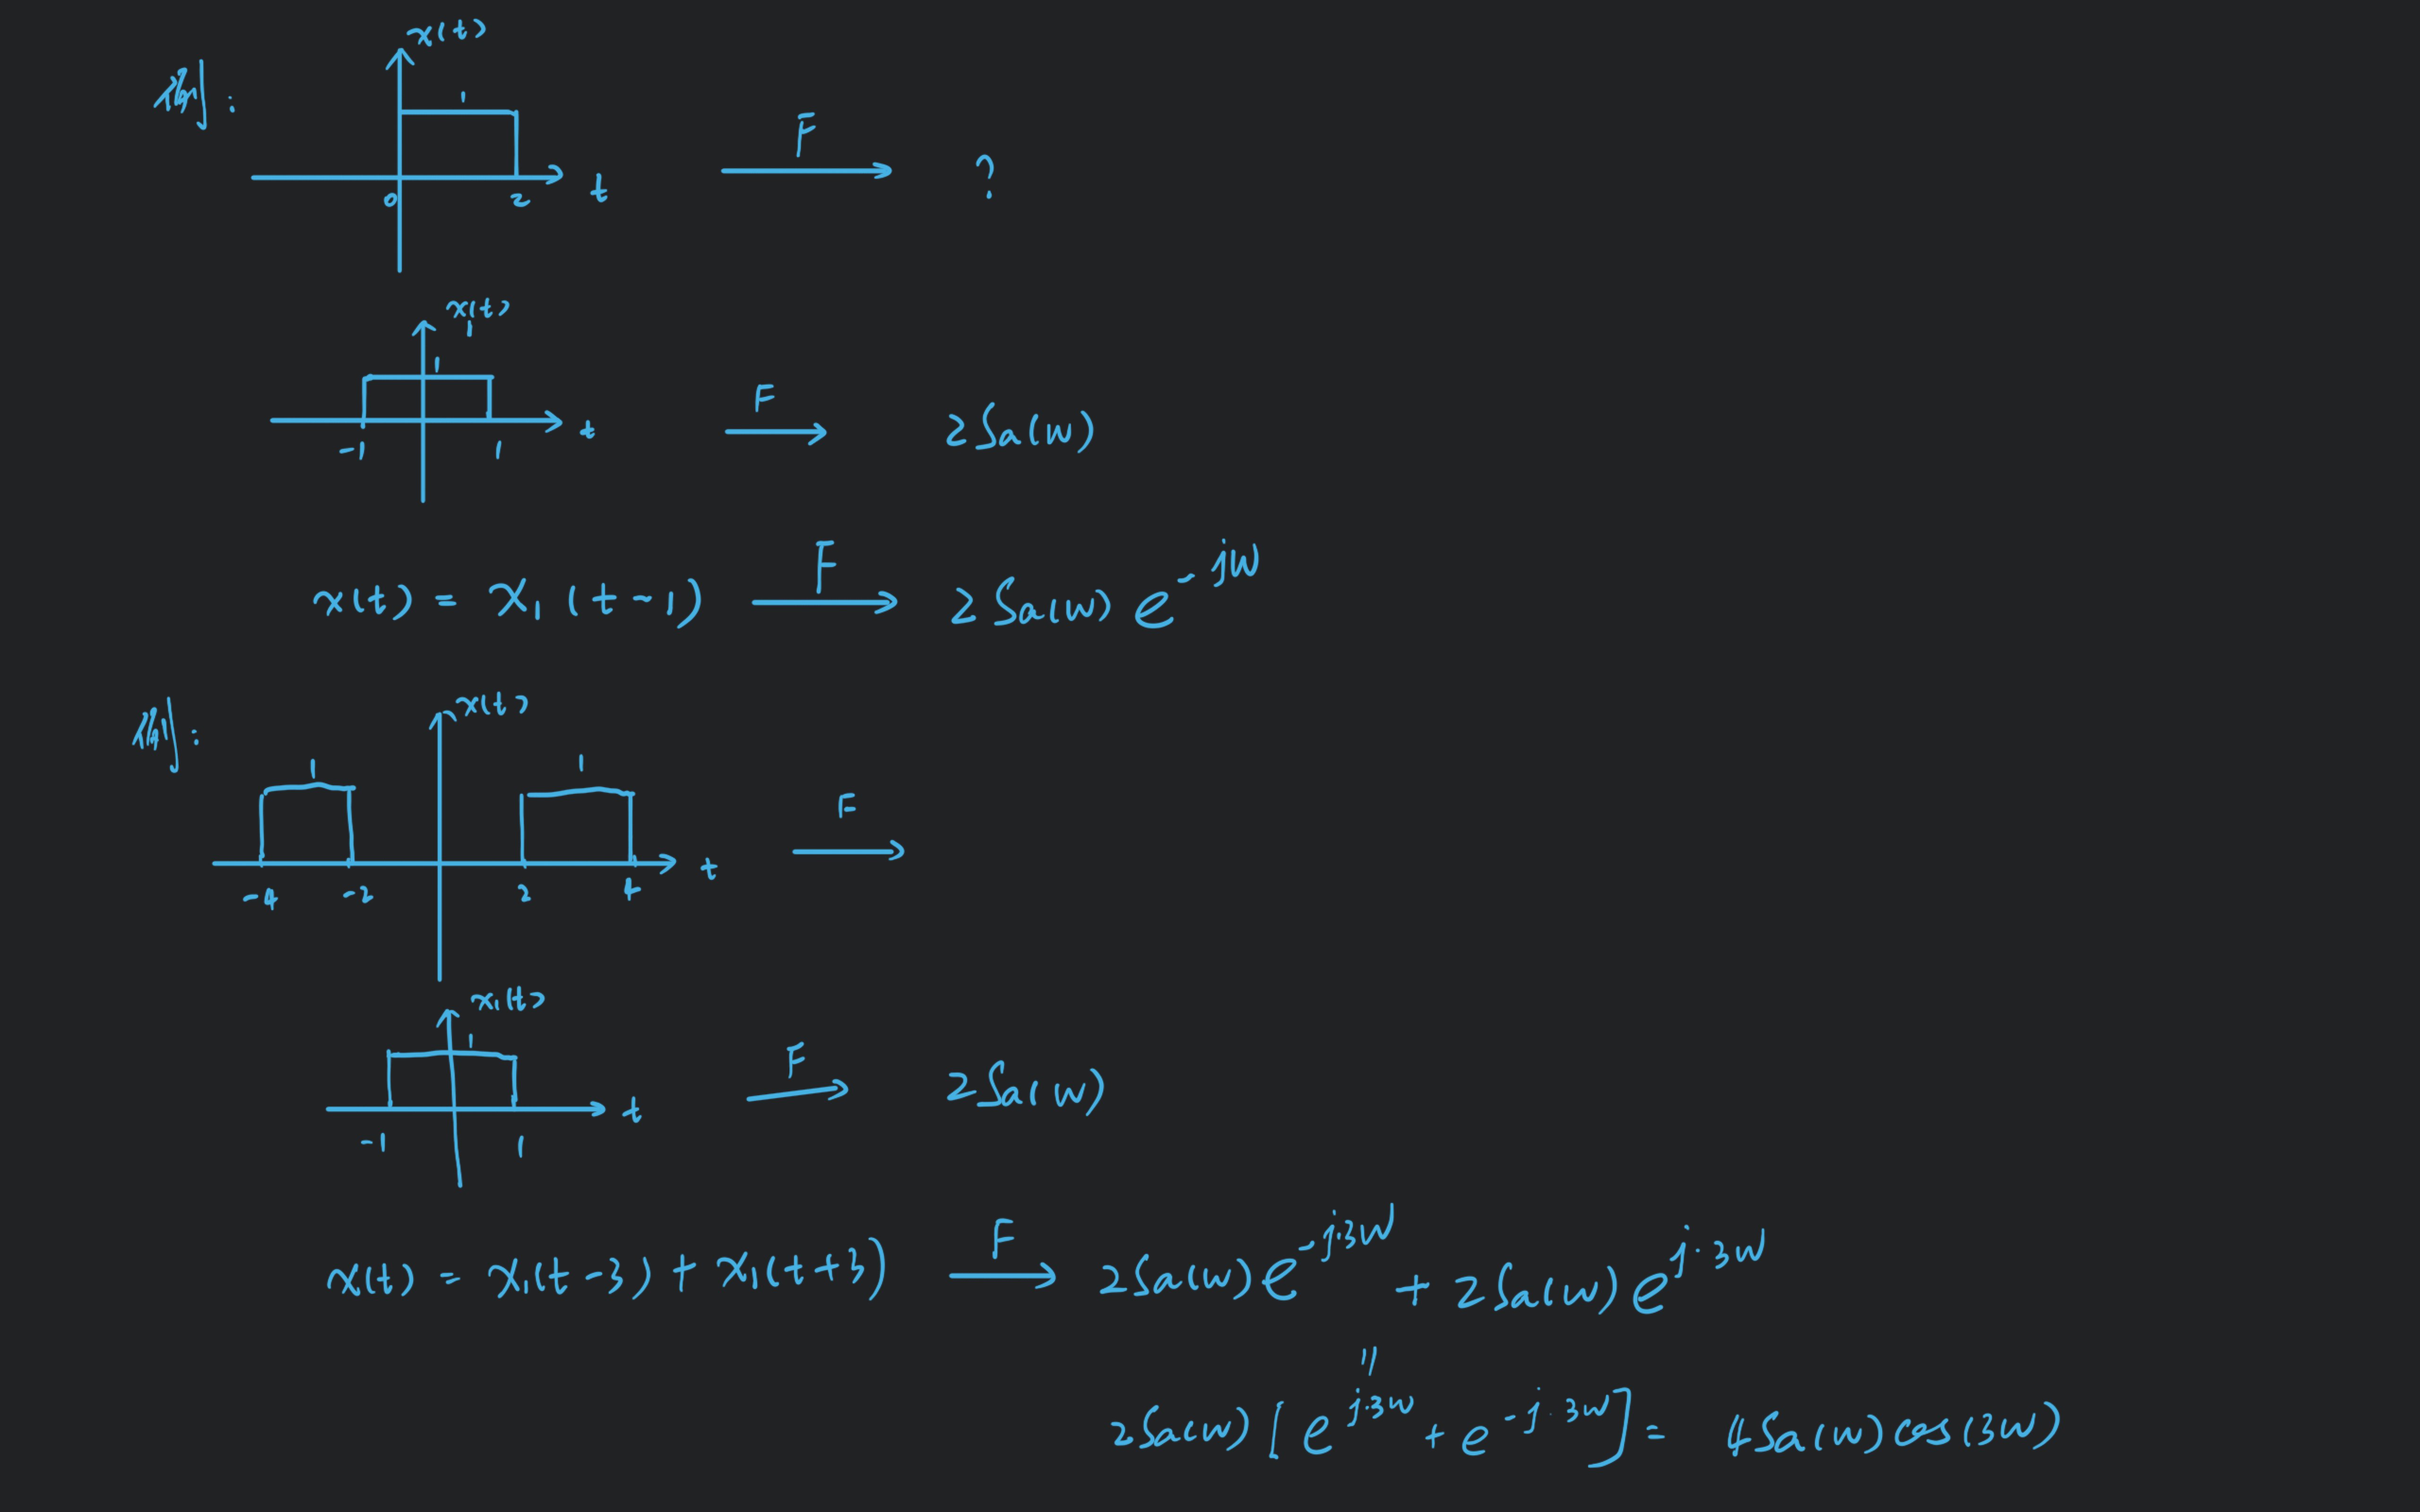 x(t)
例:
1
F
?
0 2 t
x₁(t)
1
F
2Sa(w)
-1 1 t
x(t) = x₁(t-1) F 2Sa(w)e^{-jw}
例:
x(t)
1 1
F
-4 -2 2 4 t
x₁(t)
1
F
2Sa(w)
-1 1 t
x(t) = x₁(t-3) + x₁(t+3) F 2Sa(w)e^{-j·3w} + 2Sa(w)e^{j·3w}
=
2Sa(w)[e^{j·3w} + e^{-j·3w}] = 4Sa(w)cos(3w)